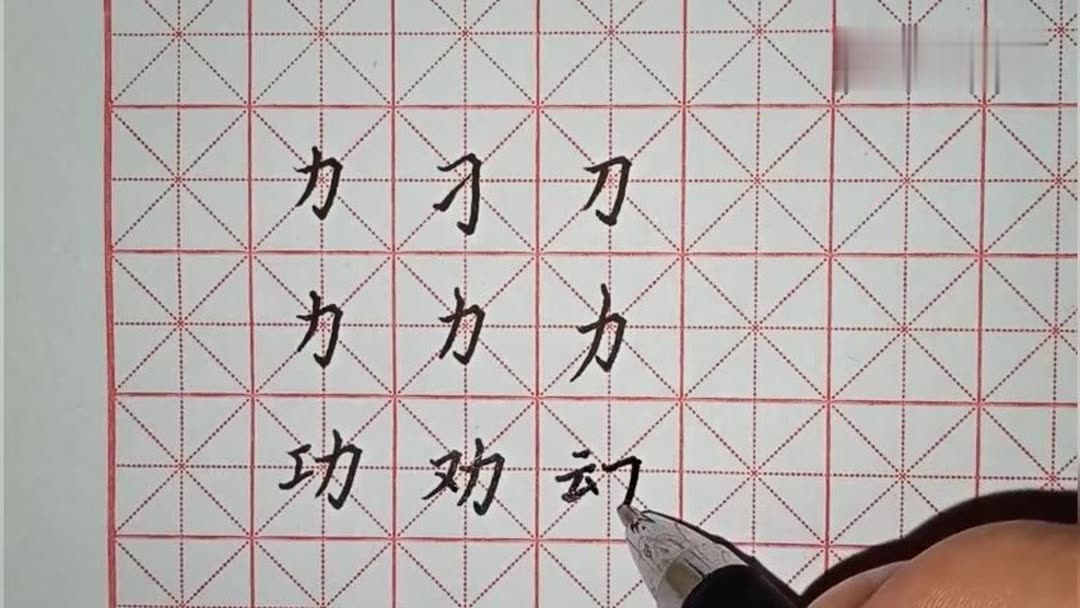 力 刁 刀
力 力 力
功 劝 动